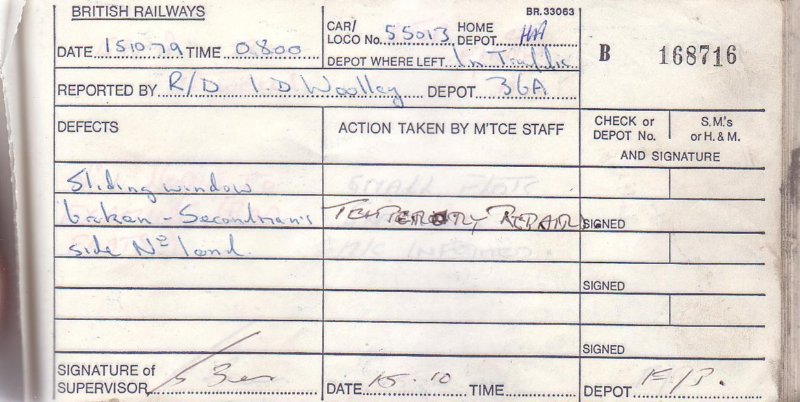 BRITISH RAILWAYS
BR.33063
DATE 15 10 79 TIME 0800
CAR/ LOCO No. 55013 HOME DEPOT HA
DEPOT WHERE LEFT In Traffic
B 168716
REPORTED BY R/D I.D Woolley DEPOT 36A
DEFECTS
ACTION TAKEN BY M'TCE STAFF
CHECK or DEPOT No.
S.M.'s or H. & M.
AND SIGNATURE
Sliding window
broken - Secondman's
side No 1 end.
TEMPERORY REPAIR.
SIGNED
SIGNED
SIGNED
SIGNATURE of SUPERVISOR
DATE 15.10 TIME
DEPOT